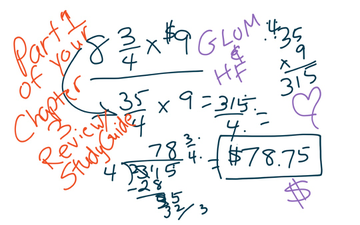 Part 1
of your
Chapter
3
Review/
StudyGuide
8 3/4 x $9
GLUM
&
HF
4
35
x 9
315
35/4 x 9 = 315/4 =
78 3/4
4 315
-28
35
32/3
= $78.75
$